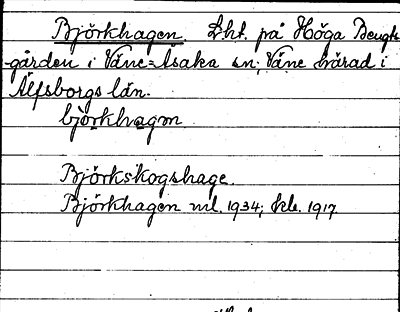 Björkhagen. Lht. på Höga Bengts-
gården i Väne-Åsaka sn; Väne härad i
Älfsborgs län.
björkhagσn
Björkskogshage.
Björkhagen ml. 1934; kb. 1917.